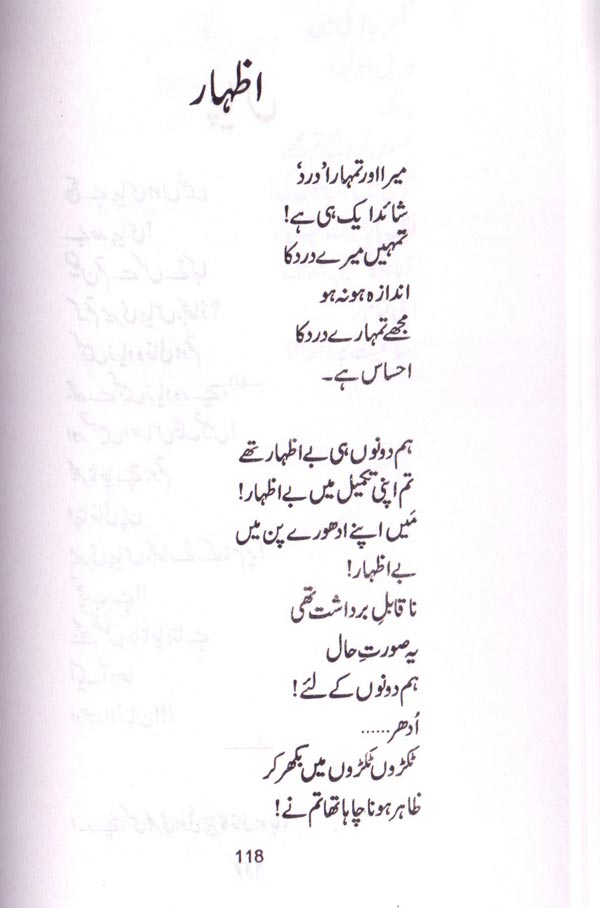 اظہار
میرا اور تمہارا 'درد'
شائد ایک ہی ہے!
تمہیں میرے درد کا
اندازہ ہو نہ ہو
مجھے تمہارے درد کا
احساس ہے۔
ہم دونوں ہی بے اظہار تھے
تم اپنی تکمیل میں بے اظہار!
مَیں اپنے ادھورے پن میں
بے اظہار!
ناقابلِ برداشت تھی
یہ صورتِ حال
ہم دونوں کے لئے!
اُدھر......
ٹکڑوں ٹکڑوں میں بکھر کر
ظاہر ہونا چاہا تھا تم نے!
118